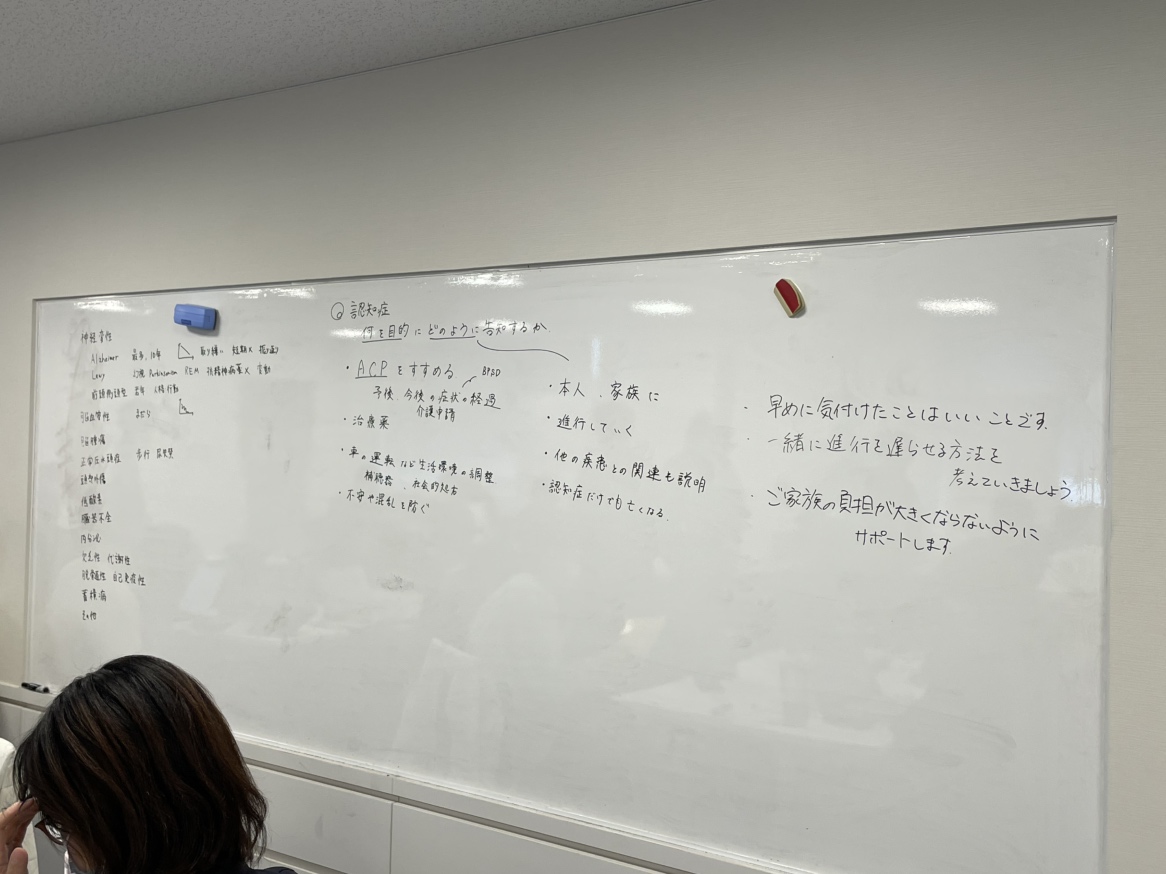 神経変性
Alzheimer 最多、10年 取り繕い 短期× 振り返り
Lewy 幻視 Parkinsonism REM 抗精神病薬× 変動
前頭側頭型 若年 人格 行動
脳血管性 まだら
脳腫瘍
正常圧水頭症 歩行 尿失禁
頭部外傷
低酸素
臓器不全
内分泌
欠乏性 代謝性
脱髄性 自己免疫性
蓄積病
その他
Q 認知症
何を目的にどのように告知するか。
・ACPをすすめる
BPSD
予後、今後の症状の経過
介護申請
・治療薬
・車の運転など生活環境の調整
補聴器、社会的処方
・不安や混乱を防ぐ
・本人、家族に
・進行していく
・他の疾患との関連も説明
・認知症だけでも亡くなる。
・早めに気付けたことはいいことです。
・一緒に進行を遅らせる方法を
考えていきましょう
・ご家族の負担が大きくならないように
サポートします。